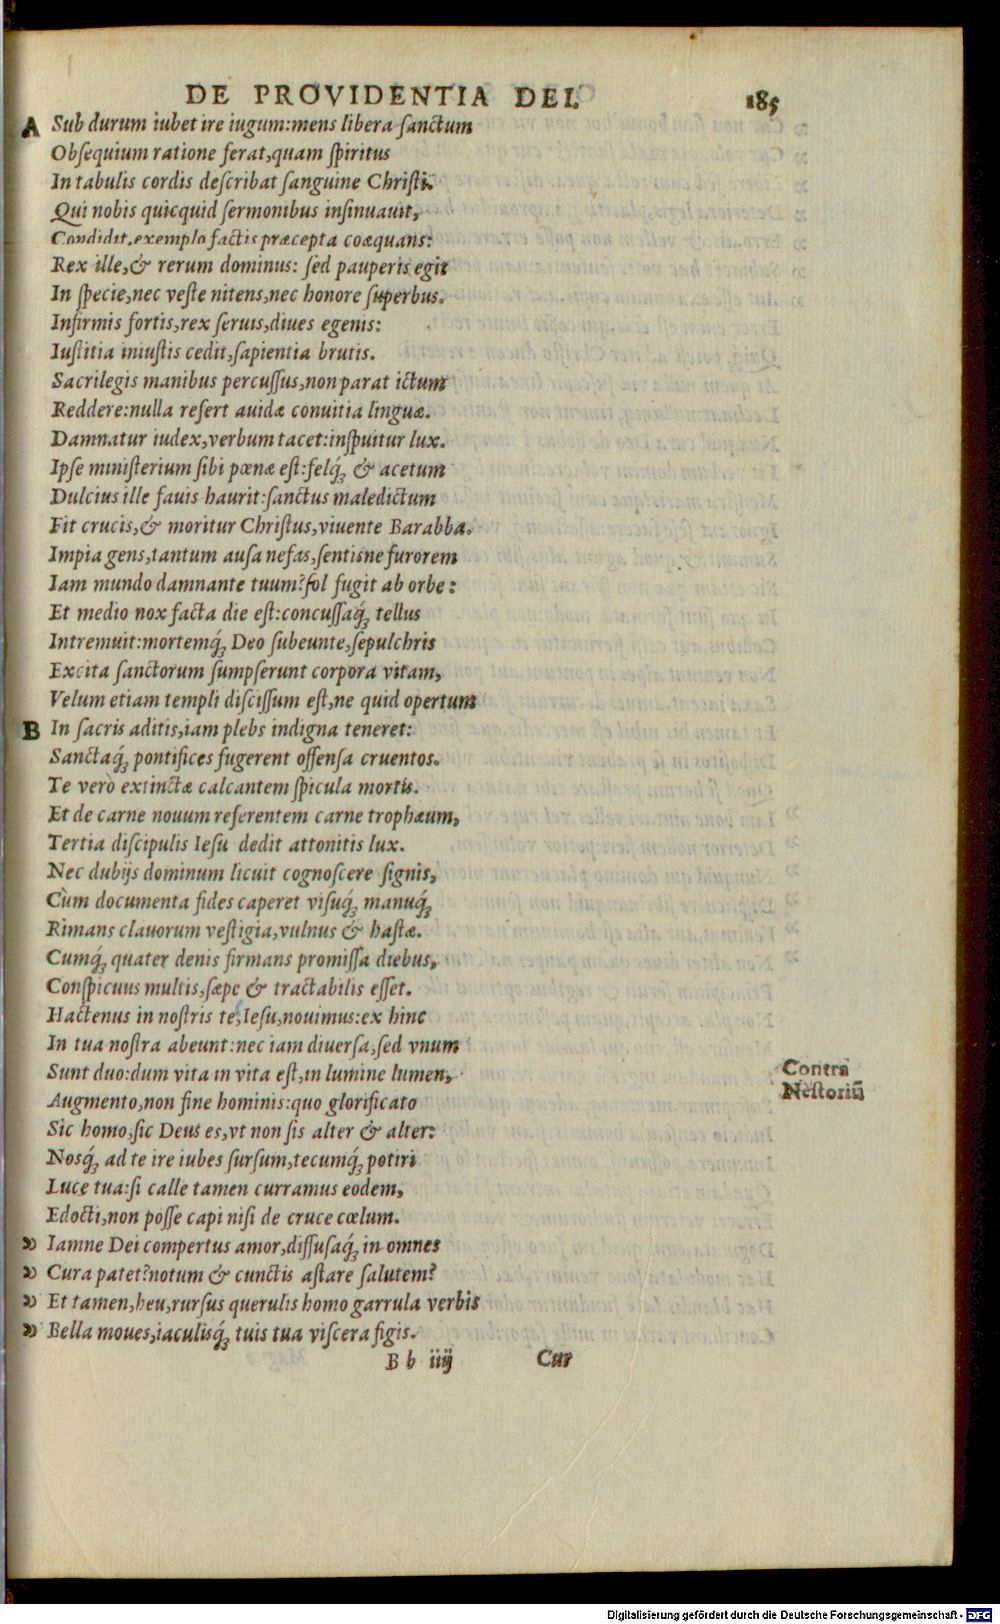 DE PROVIDENTIA DEI. 185
A Sub durum iubet ire iugum:mens libera sanctum
Obsequium ratione ferat,quam spiritus
In tabulis cordis describat sanguine Christi.
Qui nobis quicquid sermonibus insinuauit,
Condidit,exemplo factis præcepta coæquans:
Rex ille,& rerum dominus: sed pauperis egit
In specie,nec veste nitens,nec honore superbus.
Infirmis fortis,rex seruis,diues egenis:
Iustitia iniustis cedit,sapientia brutis.
Sacrilegis manibus percussus,non parat ictum
Reddere:nulla refert auidæ conuitia linguæ.
Damnatur iudex,verbum tacet:inspuitur lux.
Ipse ministerium sibi pœnæ est:felq́; & acetum
Dulcius ille fauis haurit:sanctus maledictum
Fit crucis,& moritur Christus,viuente Barabba.
Impia gens,tantum ausa nefas,sentisne furorem
Iam mundo damnante tuum?sol fugit ab orbe:
Et medio nox facta die est:concussaq́; tellus
Intremuit:mortemq́; Deo subeunte,sepulchris
Excita sanctorum sumpserunt corpora vitam,
Velum etiam templi discissum est,ne quid opertum
B In sacris aditis,iam plebs indigna teneret:
Sanctaq́; pontifices fugerent offensa cruentos.
Te verò extinctæ calcantem spicula mortis.
Et de carne nouum referentem carne trophæum,
Tertia discipulis Iesu dedit attonitis lux.
Nec dubijs dominum licuit cognoscere signis,
Cùm documenta fides caperet visuq́; manuq́;
Rimans clauorum vestigia,vulnus & hastæ.
Cumq́; quater denis firmans promissa diebus,
Conspicuus multis,sæpe & tractabilis esset.
Hactenus in nostris te,Iesu,nouimus:ex hinc
In tua nostra abeunt:nec iam diuersa,sed vnum
Sunt duo:dum vita in vita est,in lumine lumen,
Contra
Nestoriū
Augmento,non fine hominis:quo glorificato
Sic homo,sic Deus es,vt non sis alter & alter:
Nosq́; ad te ire iubes sursum,tecumq́; potiri
Luce tua:si calle tamen curramus eodem,
Edocti,non posse capi nisi de cruce cœlum.
" Iamne Dei compertus amor,diffusaq́; in omnes
" Cura patet?notum & cunctis astare salutem?
" Et tamen,heu,rursus querulis homo garrula verbis
" Bella moues,iaculisq́; tuis tua viscera figis.
B b iiij Cur
Digitalisierung gefördert durch die Deutsche Forschungsgemeinschaft - DFG